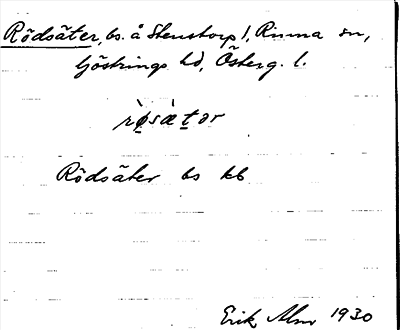 Rödsäter, bs. å Stenstorp 1, Rinna sn,
Göstrings hd, Österg. l.
rø̀sæ̀tər
Rödsäter bs kb
Erik Alm 1930